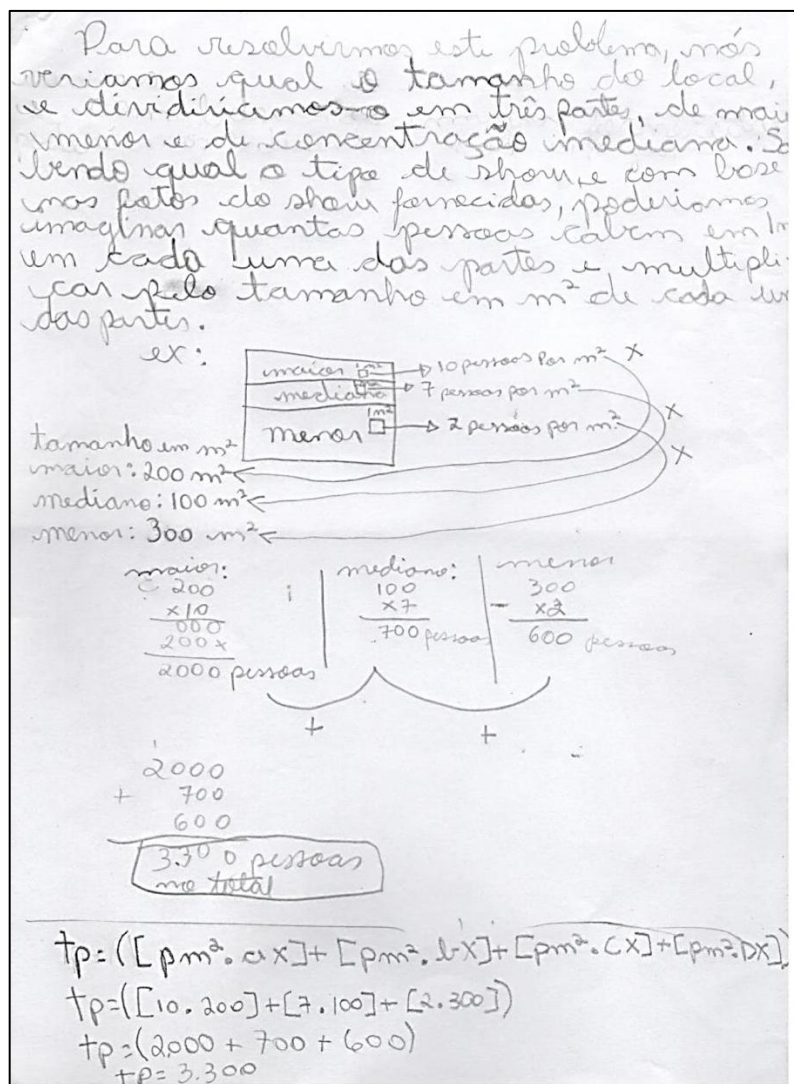 Para resolvermos este problema, nós
veriamos qual o tamanho do local,
e dividiriamos-o em três partes, de mai
menor e de concentração mediana. Sa
bendo qual o tipo de show, e com base
nas fotos do show fornecidas, poderiamos
imaginar quantas pessoas cabem em 1m
em cada uma das partes e multipli-
car pelo tamanho em m² de cada um
das partes.
ex:
maior 1m² 10 pessoas por m² x
mediano 1m² 7 pessoas por m² x
menor 1m² 2 pessoas por m² x
tamanho em m²
maior: 200 m²
mediano: 100 m²
menor: 300 m²
maior: mediano: menor
200 100 300
x10 x7 x2
000 700 pessoas 600 pessoas
200x
2000 pessoas
+ +
1
2000
+ 700
600
3.300 pessoas
no total
tp=([pm².ax]+[pm².bx]+[pm².cx]+[pm².Dx])
tp=([10.200]+[7.100]+[2.300])
tp=(2000+700+600)
tp=3.300